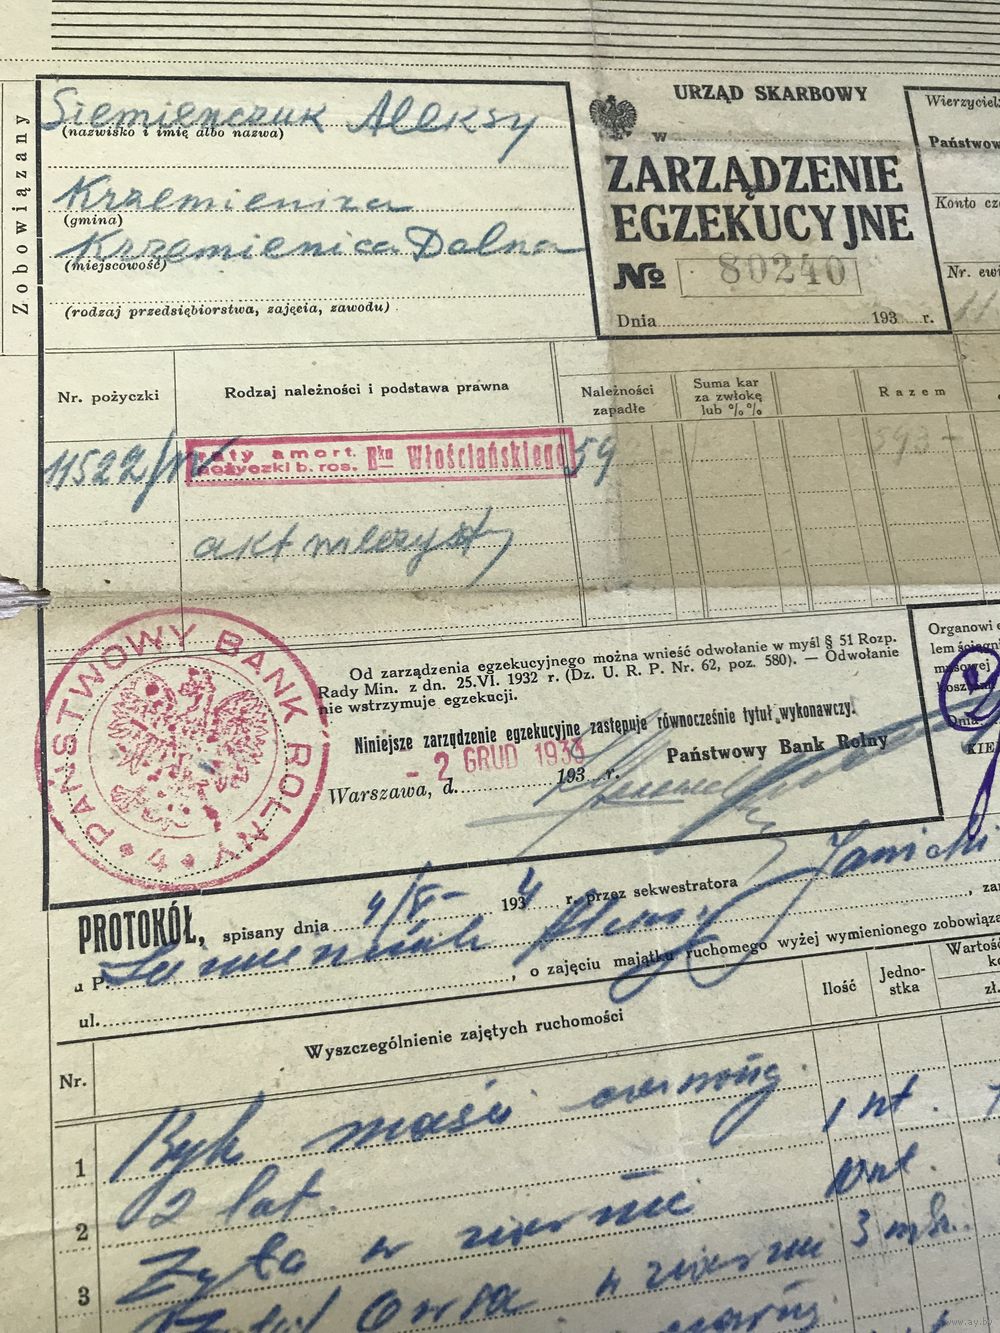 Zobowiązany
Siemienczuk Aleksy
(nazwisko i imię albo nazwa)
Krzemienica
(gmina)
Krzemienica Dolna
(miejscowość)
(rodzaj przedsiębiorstwa, zajęcia, zawodu)
URZĄD SKARBOWY
w
ZARZĄDZENIE
EGZEKUCYJNE
№ 80240
Dnia 193 r.
Wierzyciel
Państwow
Konto cz
Nr. ewi
Nr. pożyczki
Rodzaj należności i podstawa prawna
Należności
zapadłe
Suma kar
za zwłokę
lub % %
Razem
11522/
raty amort.
pożyczki b. ros. Bku Włościańskiego
59
akt wieczysty
PAŃSTWOWY BANK ROLNY
4
Od zarządzenia egzekucyjnego można wnieść odwołanie w myśl § 51 Rozp.
Rady Min. z dn. 25.VI. 1932 r. (Dz. U. R. P. Nr. 62, poz. 580). — Odwołanie
nie wstrzymuje egzekucji.
Niniejsze zarządzenie egzekucyjne zastępuje równocześnie tytuł wykonawczy.
- 2 GRUD 1933
Państwowy Bank Rolny
Warszawa, d. 193 r.
Organowi e
lem ściągn
musowej
koszt
Dnia
KIE
PROTOKÓŁ, spisany dnia 4/V- 1934 r. przez sekwestratora Janicki
u P. , za
ul. , o zajęciu majątku ruchomego wyżej wymienionego zobowiąza
Nr.
Wyszczególnienie zajętych ruchomości
Ilość
Jedno-
stka
Wartość
ko
zł.
1 Byk maści czarnej 1 szt.
2 lat.
2 Żyta w ziarnie 10
3 Owsa w ziarnie 3
www.ay.by